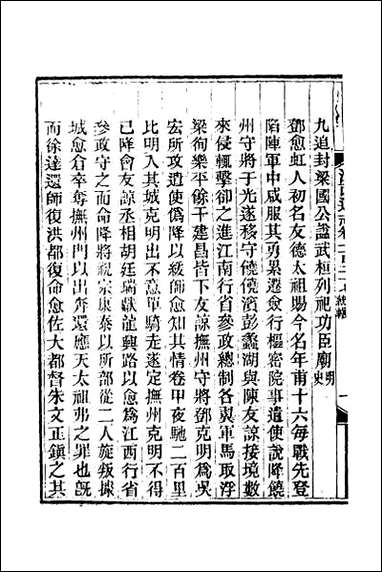 九追封梁國公諡武桓列祀功臣廟明史
鄧愈虹人初名友德太祖賜今名年甫十六每戰先登
陷陣軍中咸服其勇累遷僉行樞密院事遣使說降饒
州守將于光遂移守饒饒濱彭蠡湖與陳友諒接境數
來侵輒擊卻之進江南行省參政總制各翼軍馬取浮
梁徇樂平餘干建昌皆下友諒撫州守將鄧克明為吳
宏所攻遣使偽降以緩師愈知其情卷甲夜馳二百里
比明入其城克明出不意單騎走遂定撫州克明不得
已降會友諒丞相胡廷瑞獻龍興路以愈為江西行省
參政守之而命降將祝宗康泰以所部從二人旋叛攻
城愈倉卒奪撫州門以出奔還應天太祖弗之罪也既
而徐達還師復洪都復命愈佐大都督朱文正鎮之其